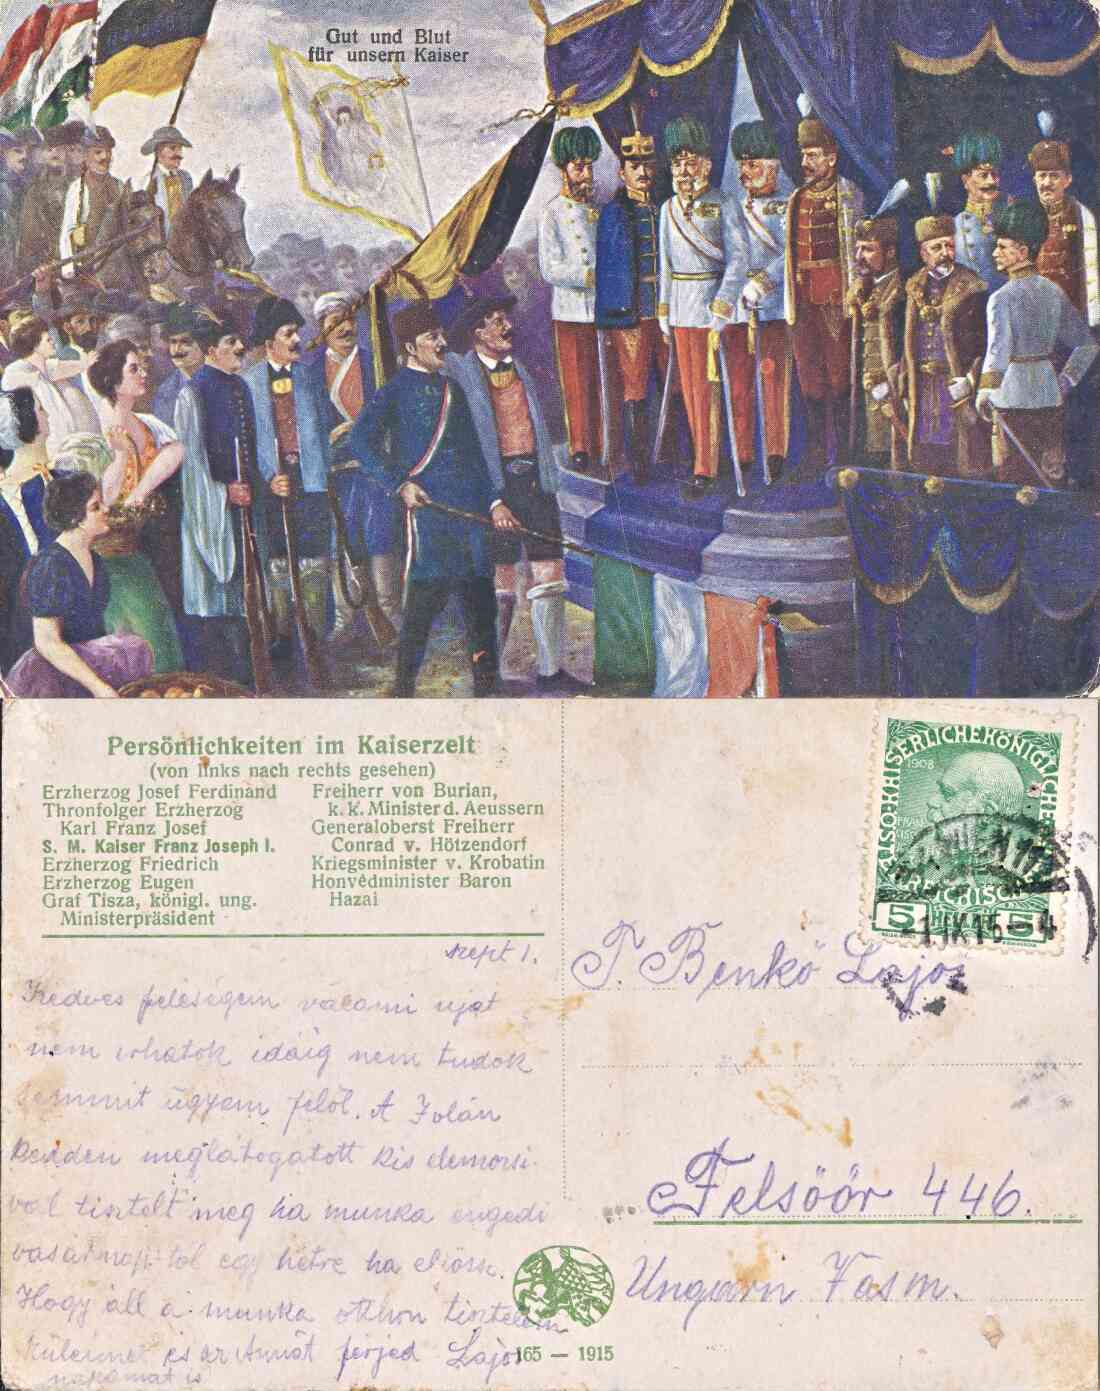 Gut und Blut
für unsern Kaiser
Persönlichkeiten im Kaiserzelt
(von links nach rechts gesehen)
Erzherzog Josef Ferdinand
Thronfolger Erzherzog
Karl Franz Josef
S. M. Kaiser Franz Joseph I.
Erzherzog Friedrich
Erzherzog Eugen
Graf Tisza, königl. ung.
Ministerpräsident
Freiherr von Burian,
k. k. Minister d. Aeussern
Generaloberst Freiherr
Conrad v. Hötzendorf
Kriegsminister v. Krobatin
Honvédminister Baron
Hazai
szept 1.
Kedves feleségem valami ujat
nem irhatok idáig nem tudok
semmit ügyem felől. A Jolán
kedden meglátogatott kis
val tisztelt meg ha munka engedi
vasárnap tól egy hétre ha eljössz.
Hogy áll a munka otthon tisztelem
szüleimet és az Annát férjed Lajos
is
165 — 1915
KAISERLICHE KÖNIGLICHE
1908
5 HELLER 5
1 IX 15 - 4
T. Benkő Lajos
Felsőőr 446.
Ungarn Vasm.